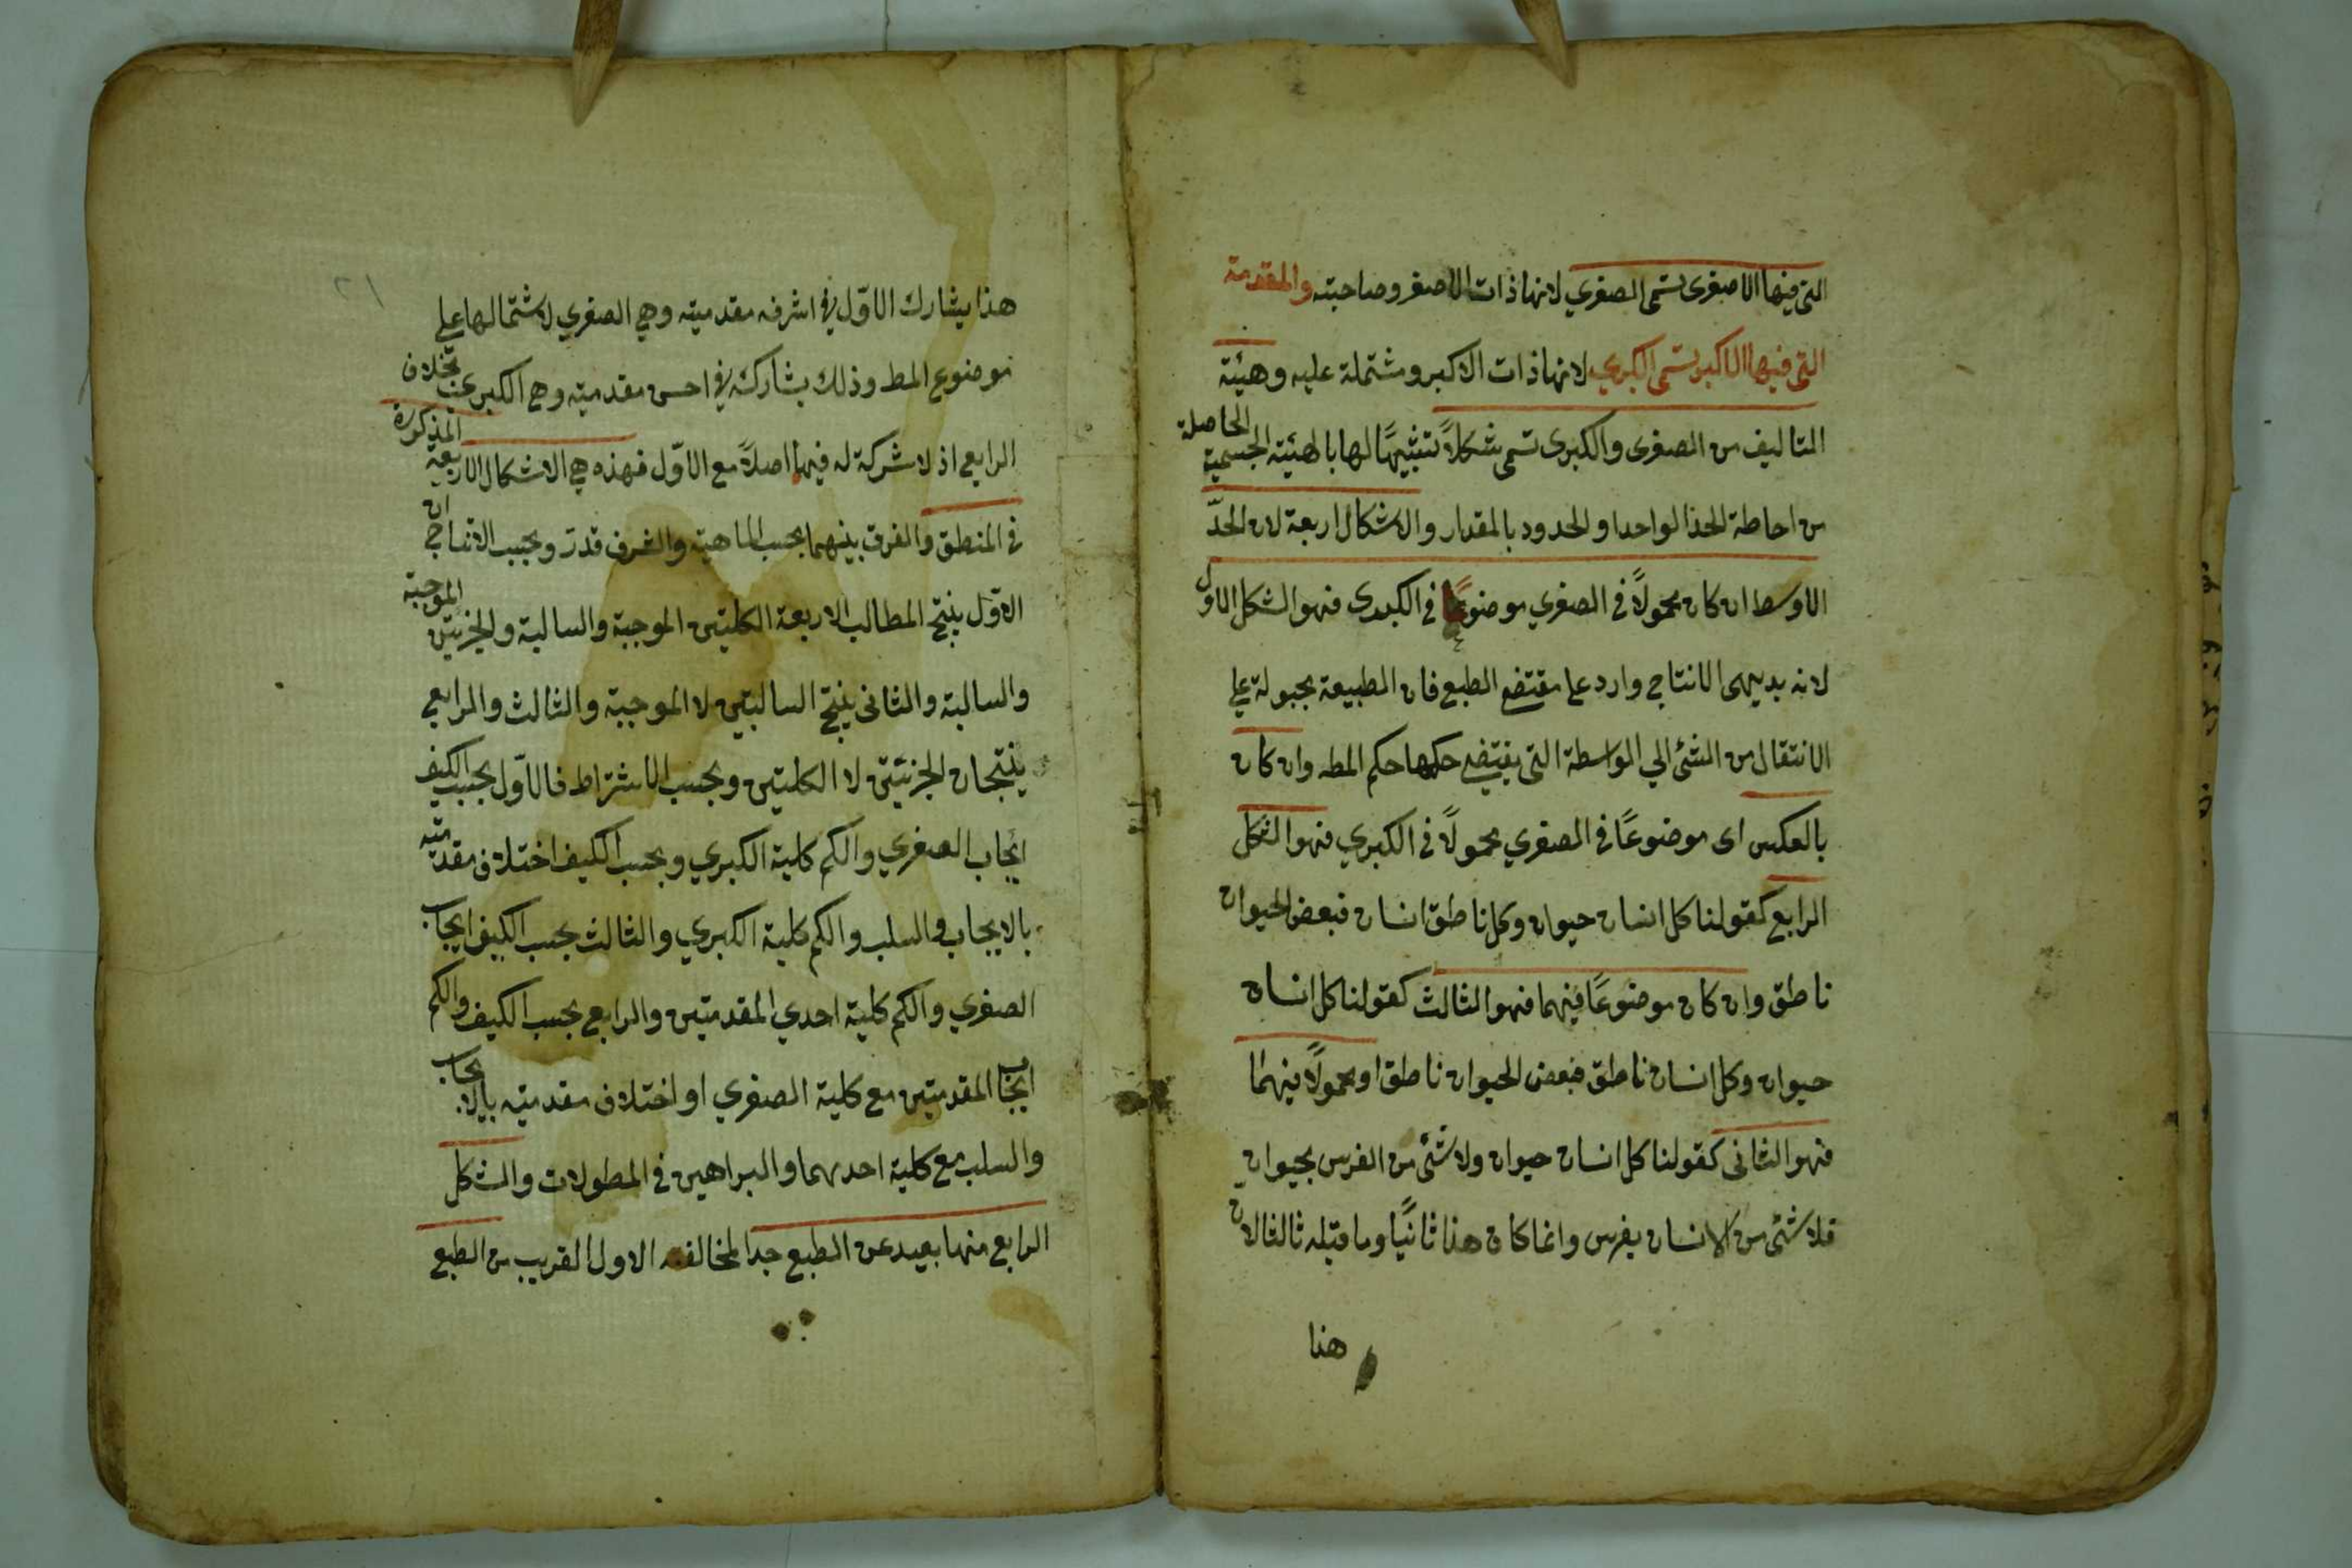 التى فيها الاصغرى تسمى الصغري لانها ذات الاصغر وصاحبته والمقدمة
التى فيها الاكبر تسمى الكبري لانها ذات الاكبر ومشتملة عليه وهيئة
التاليف من الصغرى والكبرى تسمى شكلاً تشبيهًا لها بالهيئة الجسمية الحاصلة
من احاطة الحد الواحد او الحدود بالمقدار والاشكال اربعة لان الحدّ
الاوسط ان كان محمولاً فى الصغري موضوعًا فى الكبرى فهو الشكل الاول
لانه بديهى الانتاج وارد على مقتضى الطبع فان الطبيعة مجبولة على
الانتقال من الشئ الي الواسطة التى يقتضي حكمها حكم المط وان كان
بالعكس اى موضوعًا فى الصغري محمولاً فى الكبري فهو الشكل
الرابع كقولنا كل انسان حيوان وكل ناطق انسان فبعض الحيوان
ناطق وان كان موضوعًا فيهما فهو الثالث كقولنا كل انسان
حيوان وكل انسان ناطق فبعض الحيوان ناطق او محمولاً فيهما
فهو الثانى كقولنا كل انسان حيوان ولا شئ من الفرس بحيوان
فلا شئ من الانسان بفرس وانما كان هذا ثانيًا وما قبله ثالثا لان
هنا
٢١
هذا يشارك الاوّل في اشرف مقدميته وهي الصغري لاشتمالها على
موضوع المط وذلك يشاركه في احس مقدميته وهى الكبرى بخلاف
الرابع اذ لا شركة له فيها اصلاً مع الاوّل فهذه هي الاشكال الاربعة المذكورة
فى المنطق والفرق بينهما بحسب الماهية والشرف قد مرّ وبحسب الانتاج ان
الاوّل ينتج المطالب الاربعة الكليتين الموجبة والسالبة والجزيتين الموجبة
والسالبة والثانى ينتج السالبتين لا الموجبة والثالث والرابع
ينتجان الجزئيتين لا الكليتين وبحسب الاشتراط فالاوّل بحسب الكيف
ايجاب الصغري والكم كلية الكبري وبحسب الكيف اختلاف مقدميته
بالايجاب والسلب والكم كلية الكبري والثالث بحسب الكيف ايجاب
الصغري والكم كلية احدي المقدمتين والرابع بحسب الكيف والكم
ايجاب المقدمتين مع كلية الصغري او اختلاف مقدميته بالايجاب
والسلب مع كلية احدهما والبراهين فى المطولات والشكل
الرابع منها بعيد عن الطبع جدا لمخالفته الاول القريب من الطبع